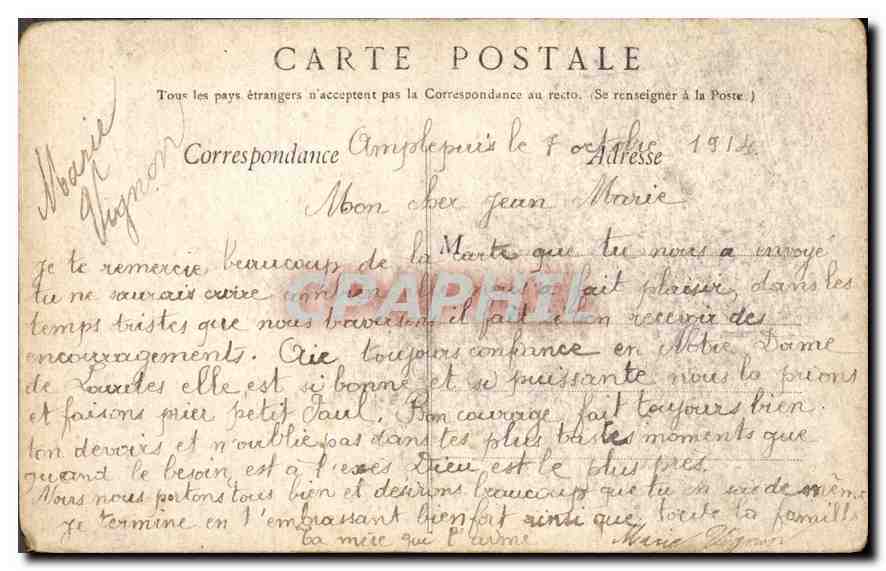 CARTE POSTALE
Tous les pays étrangers n'acceptent pas la Correspondance au recto. (Se renseigner à la Poste.)
Marie Vignon
Correspondance Amplepuis le 7 octobre Adresse 1914
Mon cher Jean Marie
Je te remercie beaucoup de la carte que tu nous a envoyé
tu ne saurais croire combien elle nous a fait plaisir, dans les
temps tristes que nous traversons il fait bon recevoir des
encouragements. Aie toujours confiance en Notre Dame
de Lourdes elle est si bonne et si puissante nous la prions
et faisons prier petit Paul. Bon courage fait toujours bien
ton devoirs et n'oublie pas dans tes plus tristes moments que
quand le besoin est à l'exes Dieu est le plus pres.
Nous nous portons tous bien et desirons beaucoup que tu en soi de même
Je termine en t'embrassant bien fort ainsi que toute la famille
ta mère qui t'aime Marie Vignon
CPAPHIL